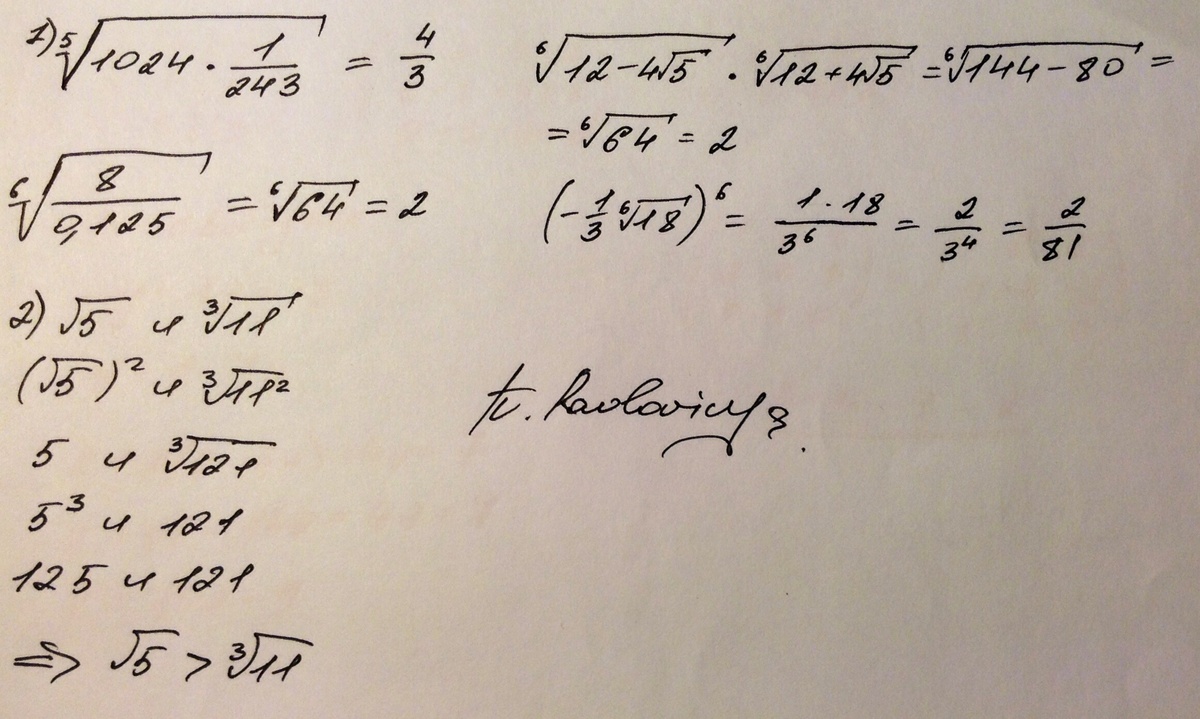 1) ⁵√(1024 · 1/243) = 4/3
⁶√(8/0,125) = ⁶√64 = 2
2) √5 и ³√11
(√5)² и ³√11²
5 и ³√121
5³ и 121
125 и 121
⇒ √5 > ³√11
⁶√(12 - 4√5) · ⁶√(12 + 4√5) = ⁶√(144 - 80) =
= ⁶√64 = 2
(-1/3 ⁶√18)⁶ = (1 · 18)/3⁶ = 2/3⁴ = 2/81